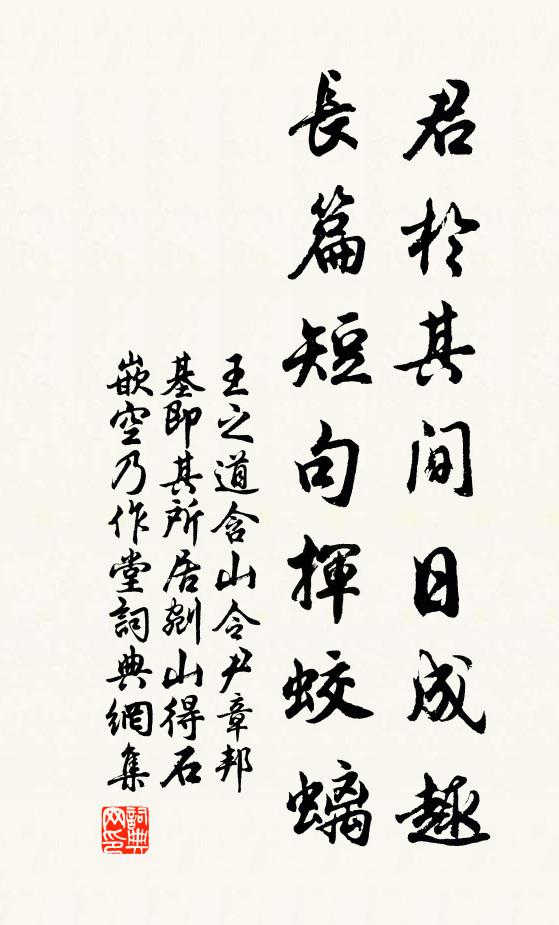 君於其間日成趣
長篇短句揮蛟螭
王之道含山令尹章邦
基即其所居剗山得石
嵌空乃作堂詞典網集
詞典
网印